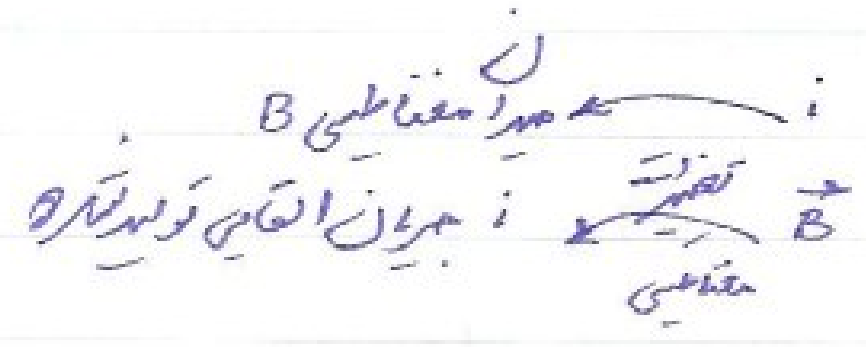 i میدان مغناطیسی B
B تغییرات مغناطیسی i جریان القایی تولید شده